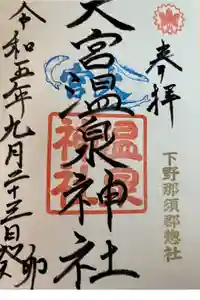 奉拝
下野那須郡惣社
大宮温泉神社
温泉
神社
令和五年九月二十三日癸卯